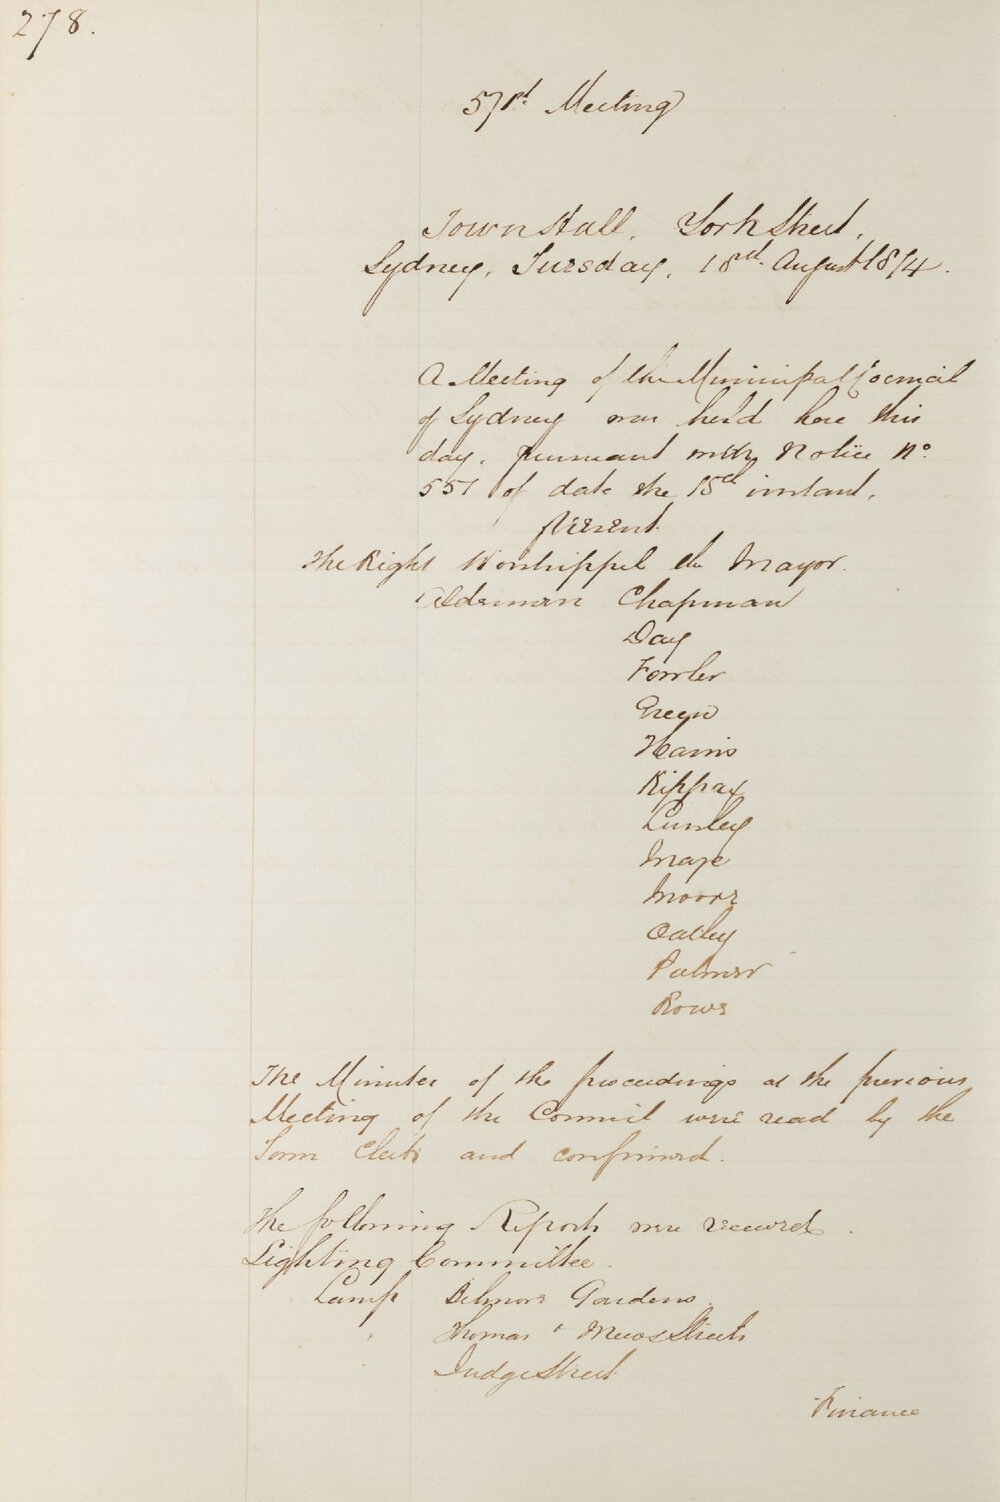 278.
571st Meeting
Town Hall, York Street,
Sydney, Tuesday, 18th August 1874.
A Meeting of the Municipal Council
of Sydney was held here this
day, pursuant with Notice No.
551 of date the 15th instant.
Present
The Right Worshipful the Mayor.
Aldermen Chapman
Day
Fowler
Green
Harris
Kippax
Lumley
Maze
Moore
Oatley
Palmer
Rowe
The Minutes of the proceedings at the previous
Meeting of the Council were read by the
Town Clerk and confirmed.
The following Reports were received.
Lighting Committee.
Lamp Belmore Gardens.
" Thomas & Streets
Judge Street
Finance